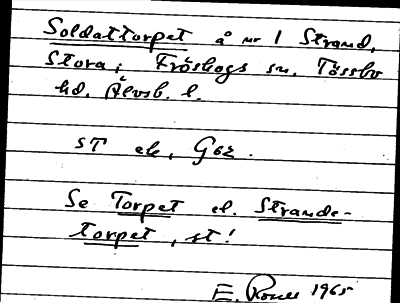 Soldattorpet å nr 1 Strand,
Stora, Fröskogs sn. Tössbo
hd. Älvsb. l.
ST ek, G62.
Se Torpet el. Strande-
torpet, st!
E. 1965